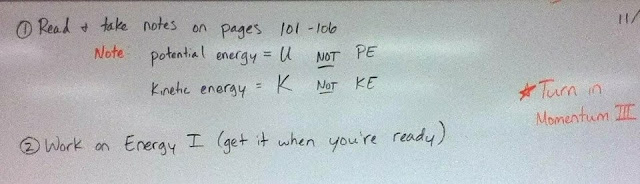 ① Read & take notes on pages 101-106
11/
Note: potential energy = U NOT PE
Kinetic energy = K NOT KE
★ Turn in
Momentum III
② Work on Energy I (get it when you're ready)